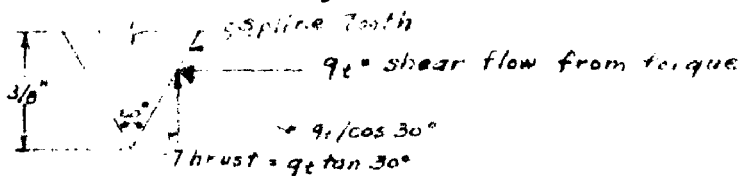 Spline Tooth
qt = shear flow from torque
3/8"
30°
qt/cos 30°
Thrust = qt tan 30°